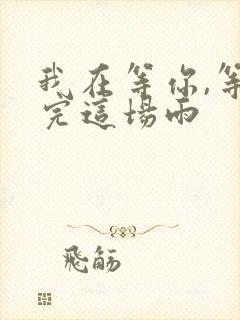 我在等你,等
完這場雨
飛觞